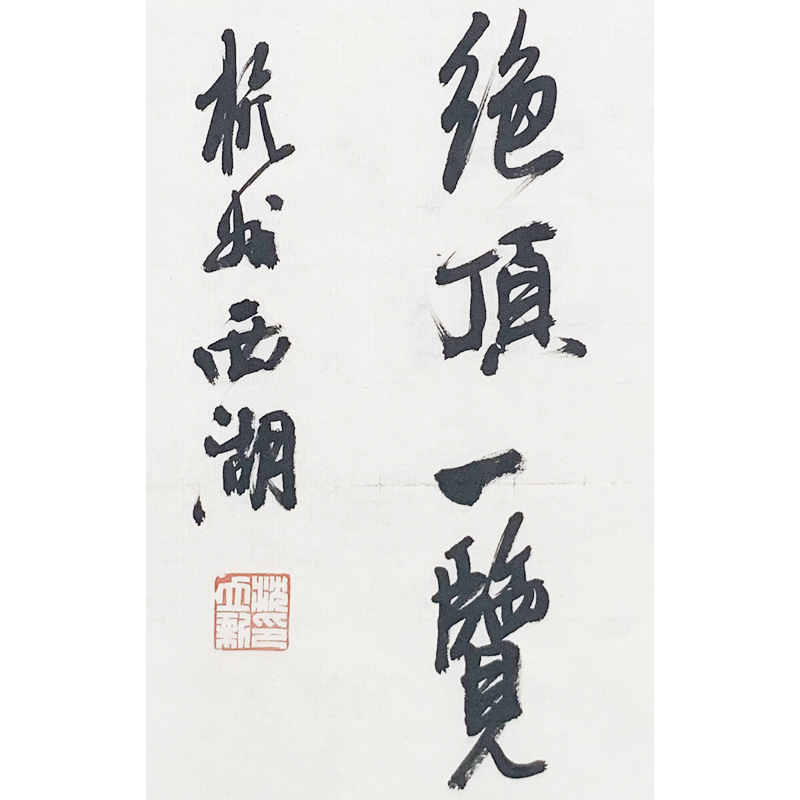 絶頂一覽
杭州西湖